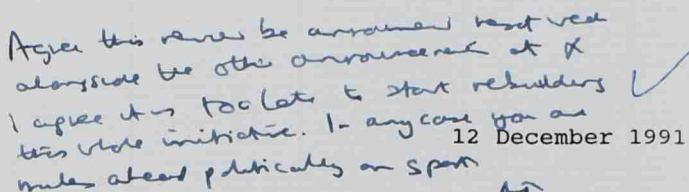 Agree this review be announced next week
alongside the other announcement at X
I agree it is too late to start rebuilding ✓
this whole initiative. In any case you are
12 December 1991
miles ahead politically on sport